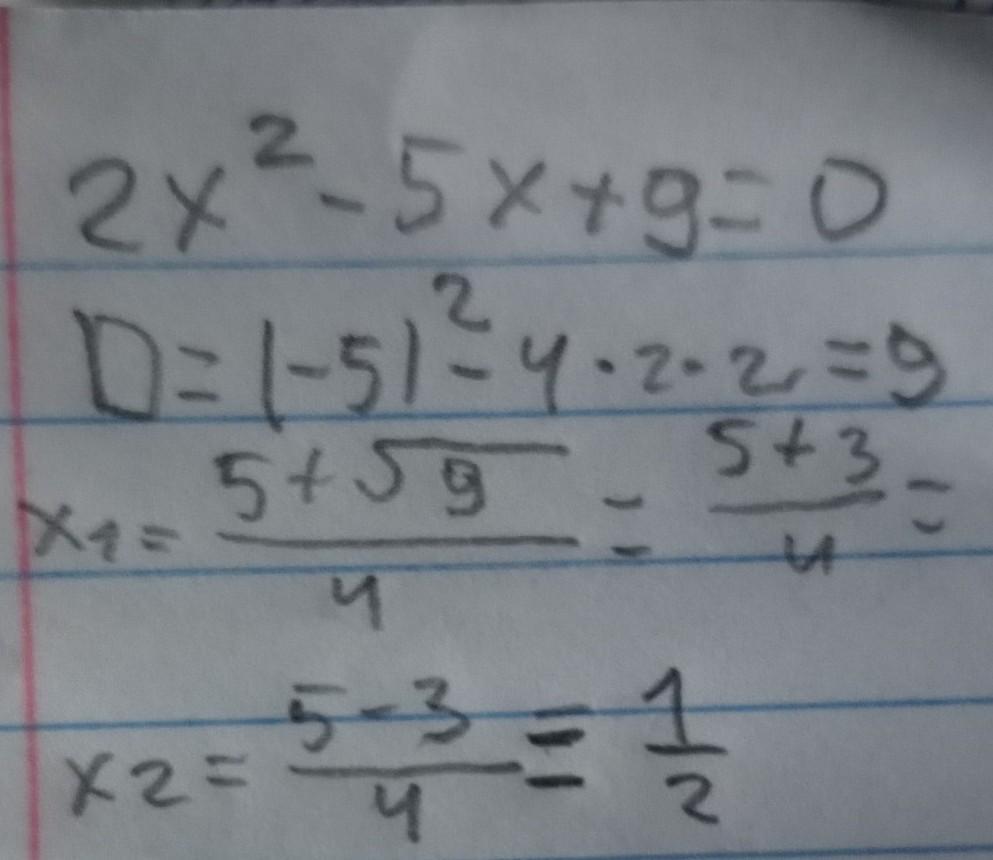 2x² - 5x + 9 = 0
D = |-5|² - 4 · 2 · 2 = 9
x1 = (5 + √9)/4 = (5 + 3)/4 =
x2 = (5 - 3)/4 = 1/2